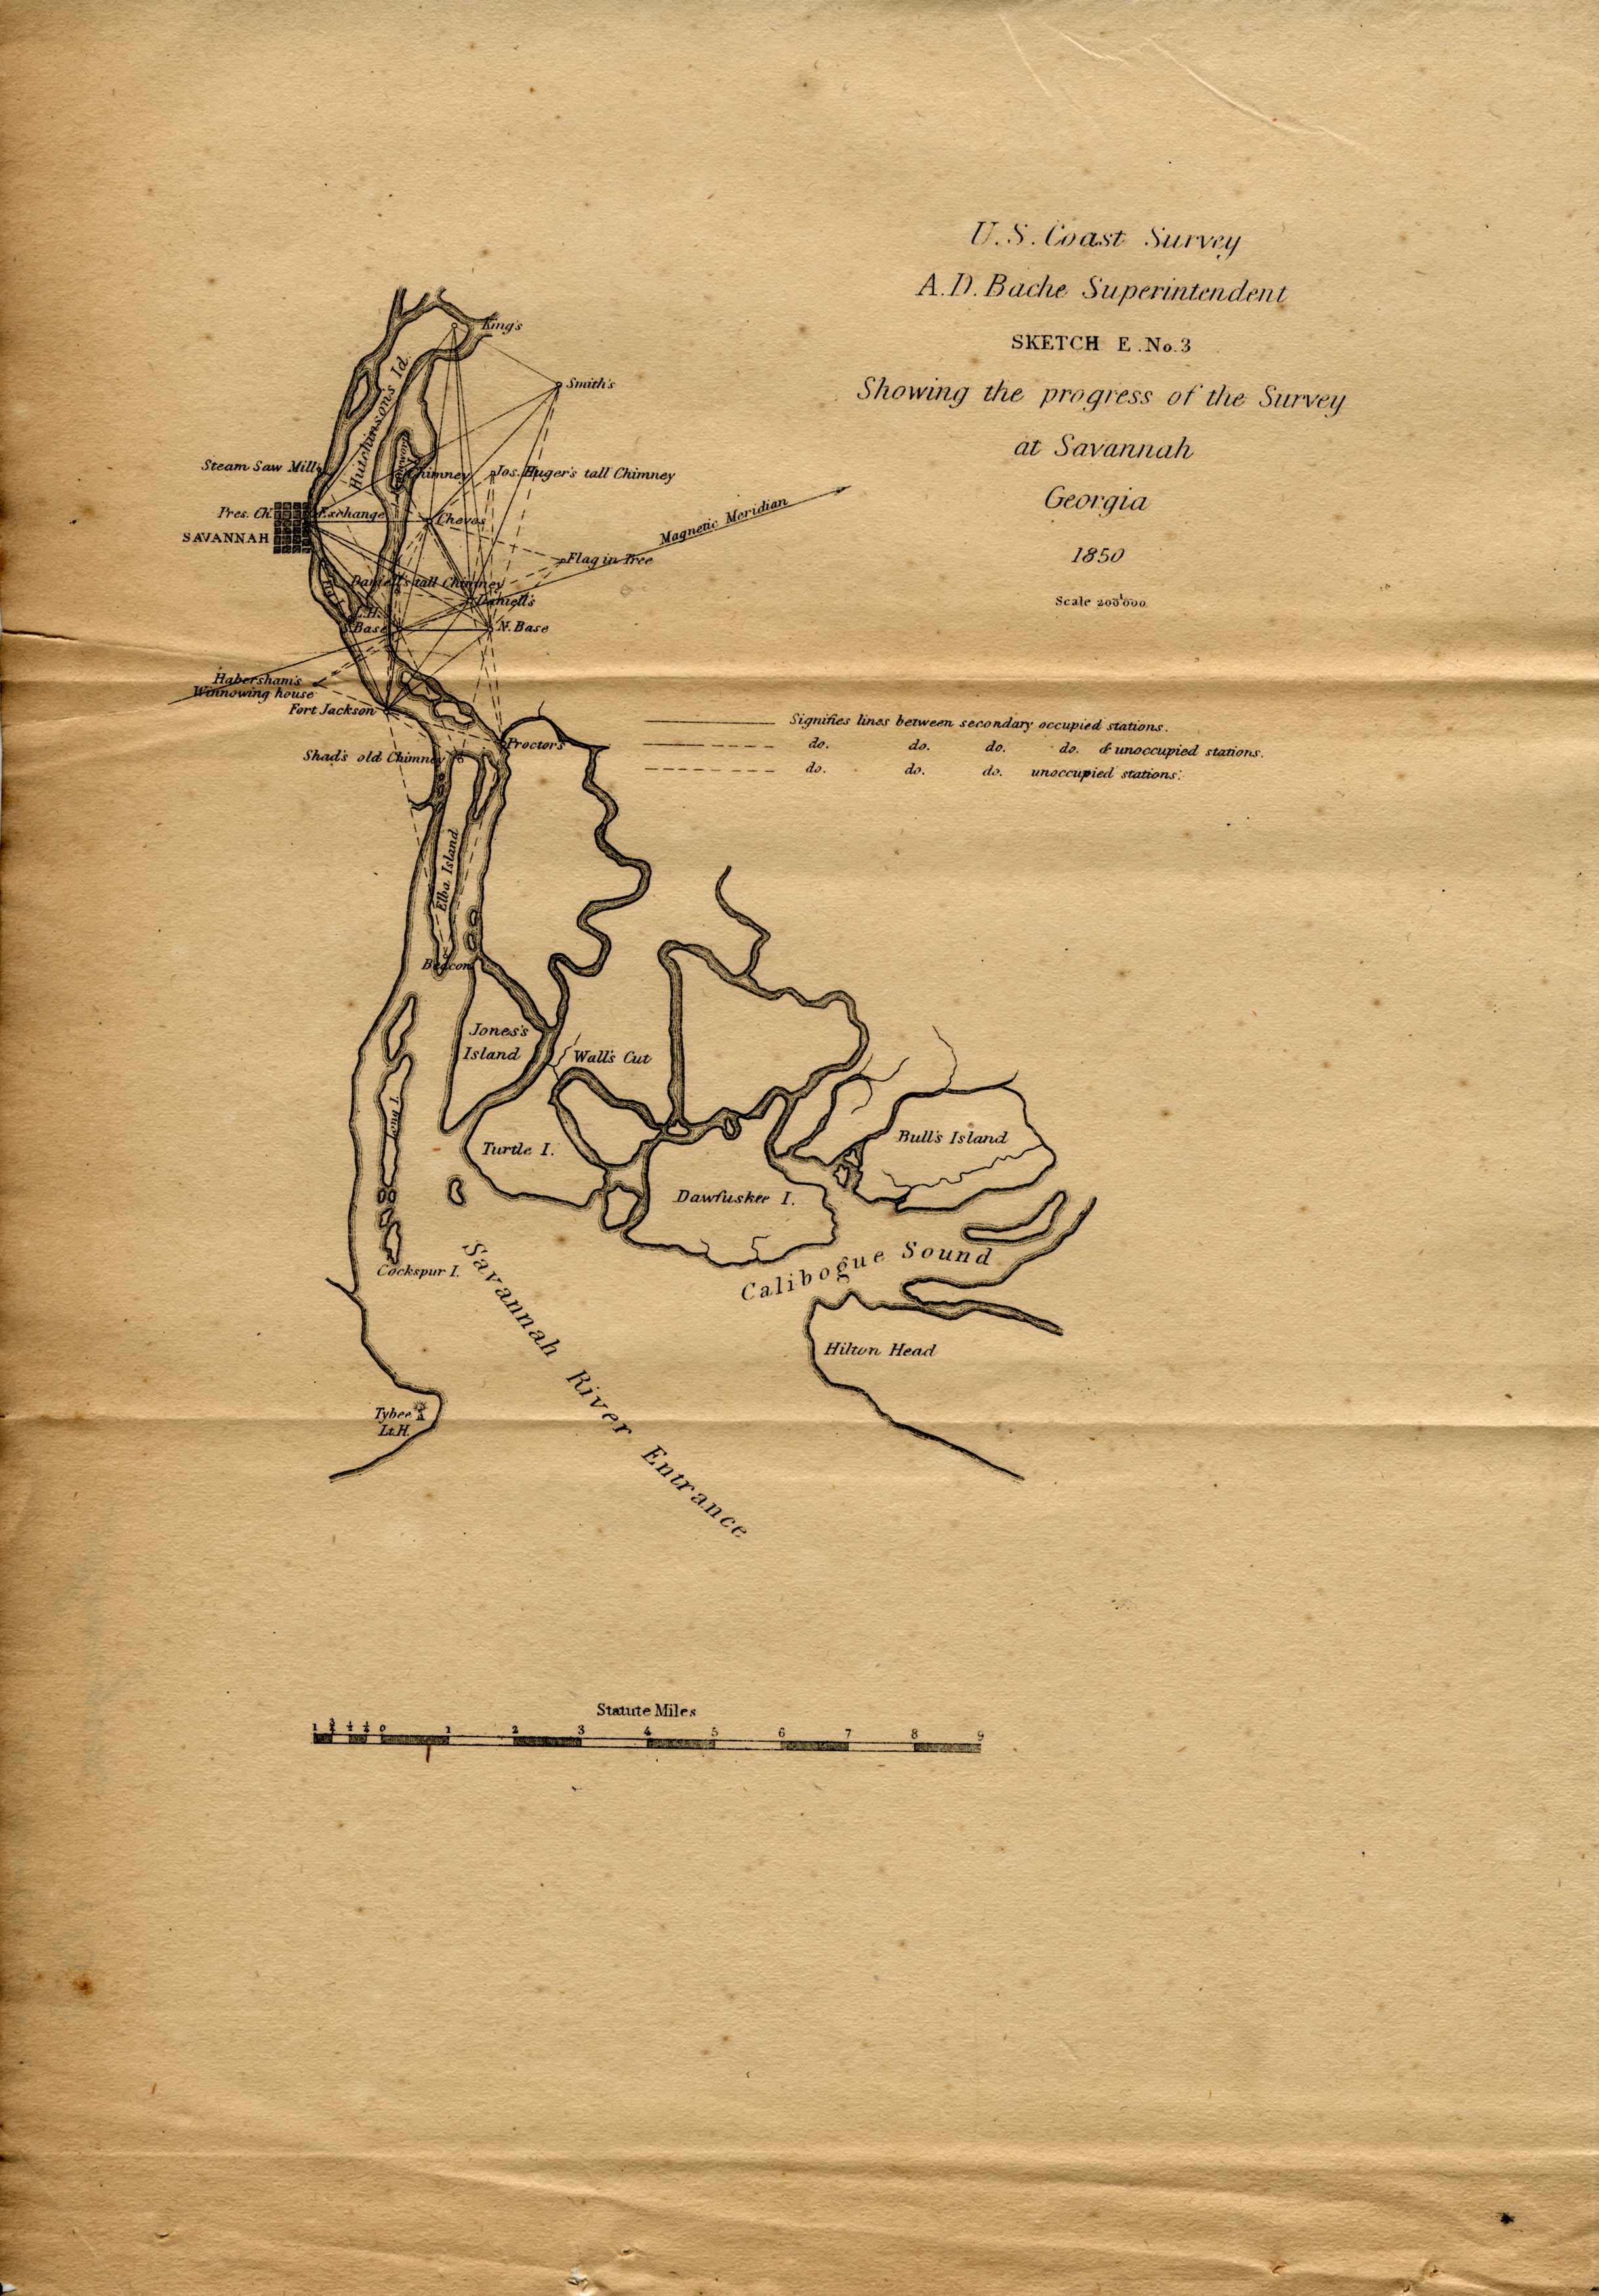 U.S. Coast Survey
A.D. Bache Superintendent
SKETCH E. No. 3
Showing the progress of the Survey
at Savannah
Georgia
1850
Scale 1/200'000
King's
Smith's
Hutchinson's Id.
Steam Saw Mill
Chimney
Jos. Huger's tall Chimney
Pres. Ch.
Exchange
Cheves
SAVANNAH
Magnetic Meridian
Flag in Tree
Daniell's tall Chimney
Daniell's
L.H.
S. Base
N. Base
Habersham's
Winnowing house
Fort Jackson
Signifies lines between secondary occupied stations.
do. do. do. do. & unoccupied stations.
do. do. do. unoccupied stations.
Proctor's
Shad's old Chimney
Elba Island
Beacon
Jones's
Island
Wall's Cut
Turtle I.
Bull's Island
Dawfusker I.
Calibogue Sound
Cockspur I.
Savannah River Entrance
Hilton Head
Tybee
Lt.H.
Statute Miles
1 3/4 1/2 1/4 0 1 2 3 4 5 6 7 8 9